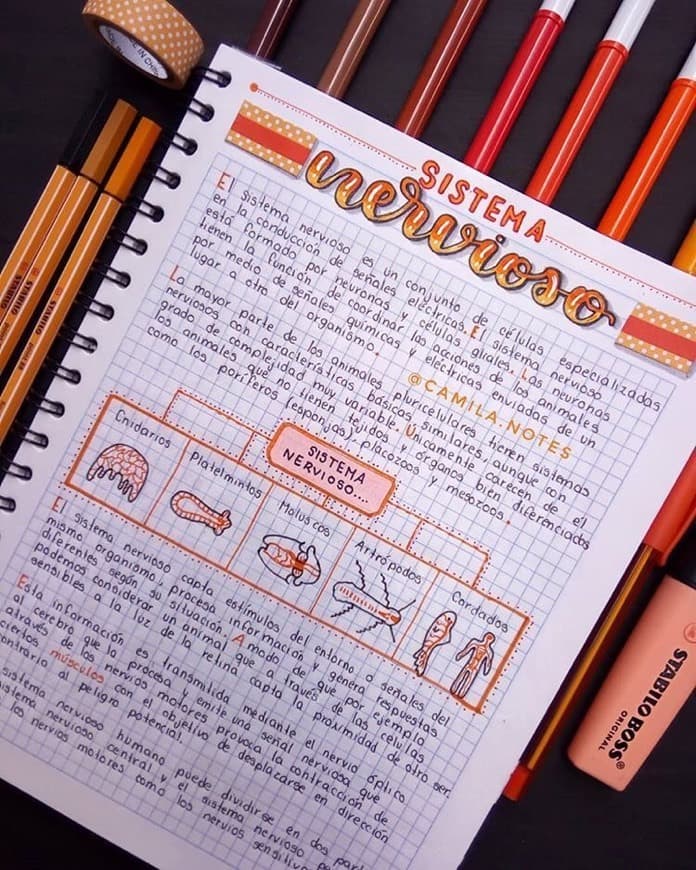 MADE IN CHINA
SISTEMA
nervioso
El sistema nervioso es un conjunto de células especializadas
en la conducción de señales eléctricas. El sistema nervioso
está formado por neuronas y células gliales. Las neuronas
tienen la función de coordinar las acciones de los animales
por medio de señales químicas y eléctricas enviadas de un
lugar a otro del organismo.
@CAMILA.NOTES
La mayor parte de los animales pluricelulares tienen sistemas
nerviosos con características básicas similares, aunque con
grado de complejidad muy variable. Únicamente carecen de él
los animales que no tienen tejidos y órganos bien diferenciados
como los poríferos (esponjas), placozoos y mesozoos.
SISTEMA
NERVIOSO....
Cnidarios
Platelmintos
Moluscos
Artrópodos
Cordados
El sistema nervioso capta estímulos del entorno o señales del
mismo organismo, procesa información y genera respuestas
diferentes según su situación. A modo de que por ejemplo
podemos considerar un animal que a través de las células
sensibles a la luz de la retina capta la proximidad de otro ser.
Esta información es transmitida mediante el nervio óptico
al cerebro que la procesa y emite una señal nerviosa que
através de los nervios motores provoca la contracción de
ciertos músculos con el objetivo de desplazarse en dirección
contraria al peligro potencial.
sistema nervioso humano puede dividirse en dos
sistema nervioso central y el sistema nervioso
los nervios motores como los nervios
STABILO
STABILO
STABILO BOSS
ORIGINAL